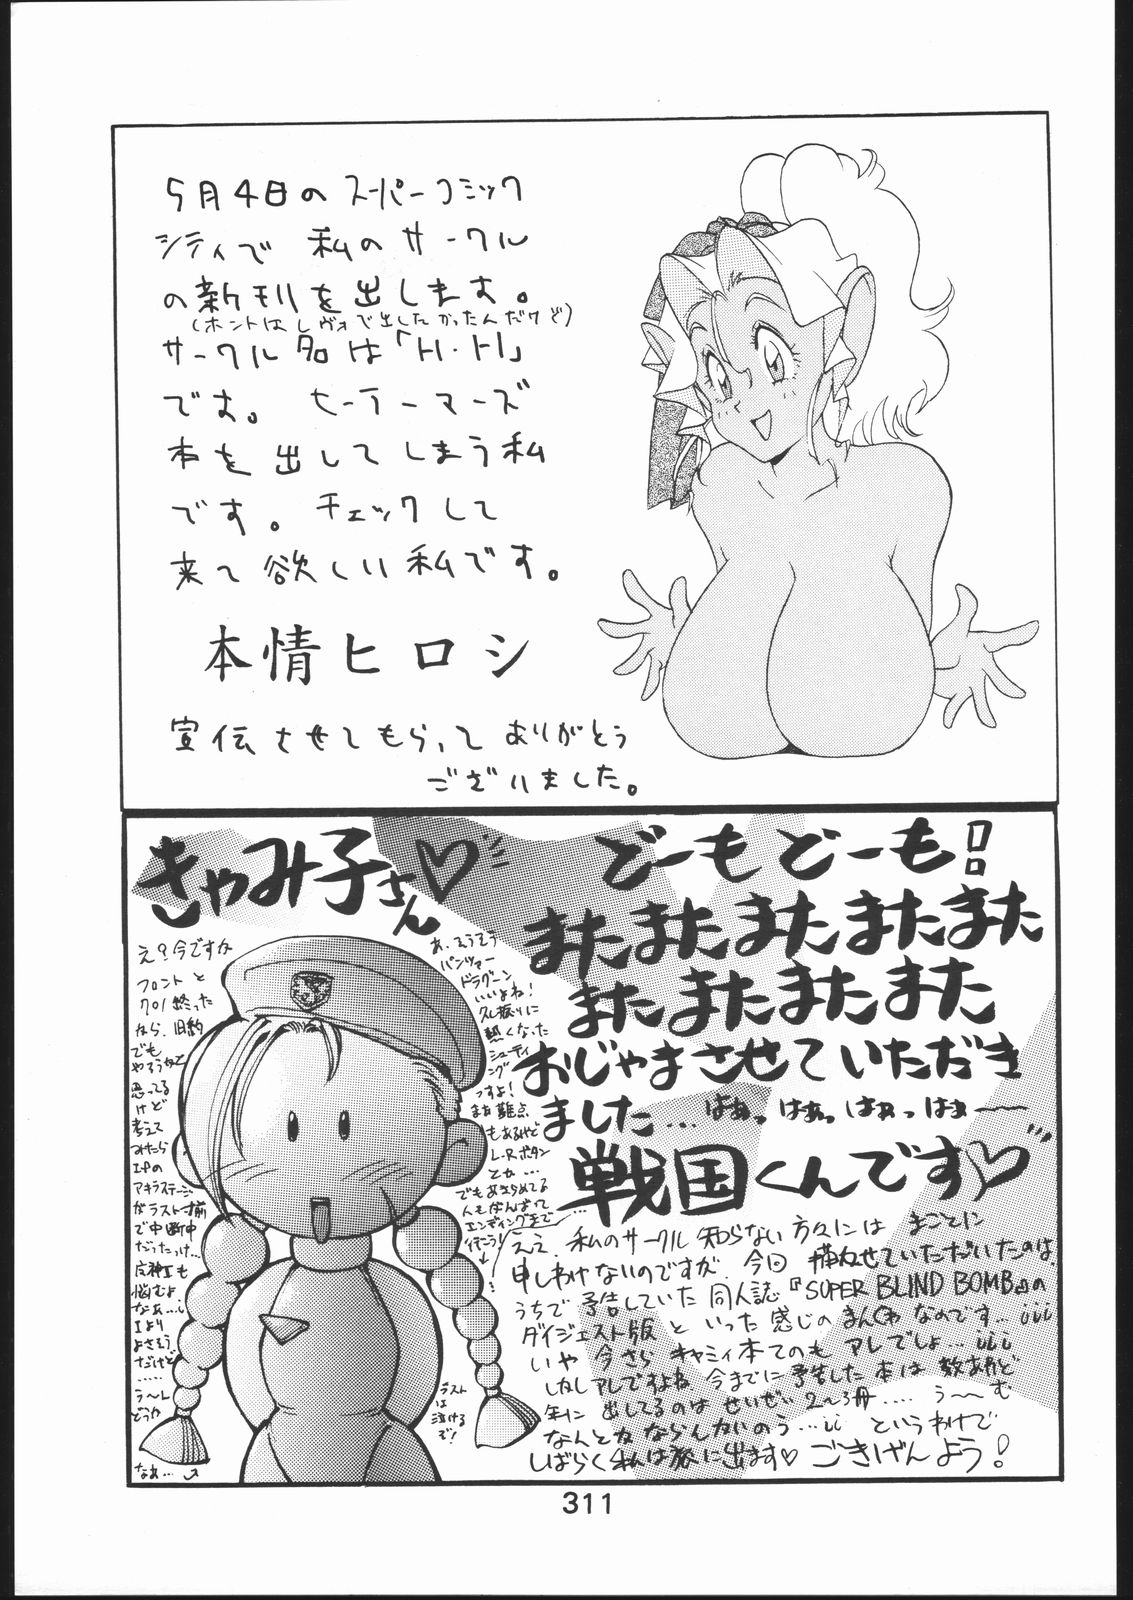 5月4日のスーパーコミック
シティで 私のサークル
の新刊を出します。
(ホントはレヴォで出したかったんだけど)
サークル名は「トl・トl」
です。 セーラーマーズ
本を出してしまう私
です。チェックして
来て欲しい私です。
本情ヒロシ
宣伝させてもらって ありがとう
ございました。
どーもどーも!
またまたまたまたまた
またまたまたまた
おじゃまさせていただき
ました…はぁっはぁっはぁっはぁ〜〜
戦国くんです♡
ええ、私のサークル知らない方々には まことに
申しわけないのですが、今回 描かせていただいたのは、
うちで予告していた同人誌『SUPER BLIND BOMB』の
ダイジェスト版 といった感じのまんがなのです…
いや 今さら キャミィ本てのも アレでしょ…
しかしアレですよね、今までに予告した本は数あれど
年に出してるのは せいぜい2〜3冊…. う〜〜む
なんとかならんかいのう… というわけで
しばらく私は旅に出ます♡ ごきげんよう!
きゃみ子さん♡
あ、そうそう
パンツァー
ドラグーン
いいよね!
久し振りに
熱くなった
シューティ
ング
っすよ!
まあ難点
もあるけど
L・Rボタン
とか…
でもあきらめてる
人もがんばって
エンディングまで
行こう!
ラスト
は
泣ける
ぞ!
え?今ですか
フロントと
クロノ終った
から、旧約
でも
やろうかと
思ってる
けど
考えて
みたら
I・Pの
アキラステージ
がラスト一揃
で中断中
だったっけ…
悩むよ
なぁ…
Iより
よさそう
だけど
……
う〜し
どうか
なぁ…
311